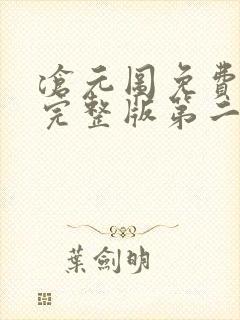 滄元圖免費
完整版第二
葉劍明